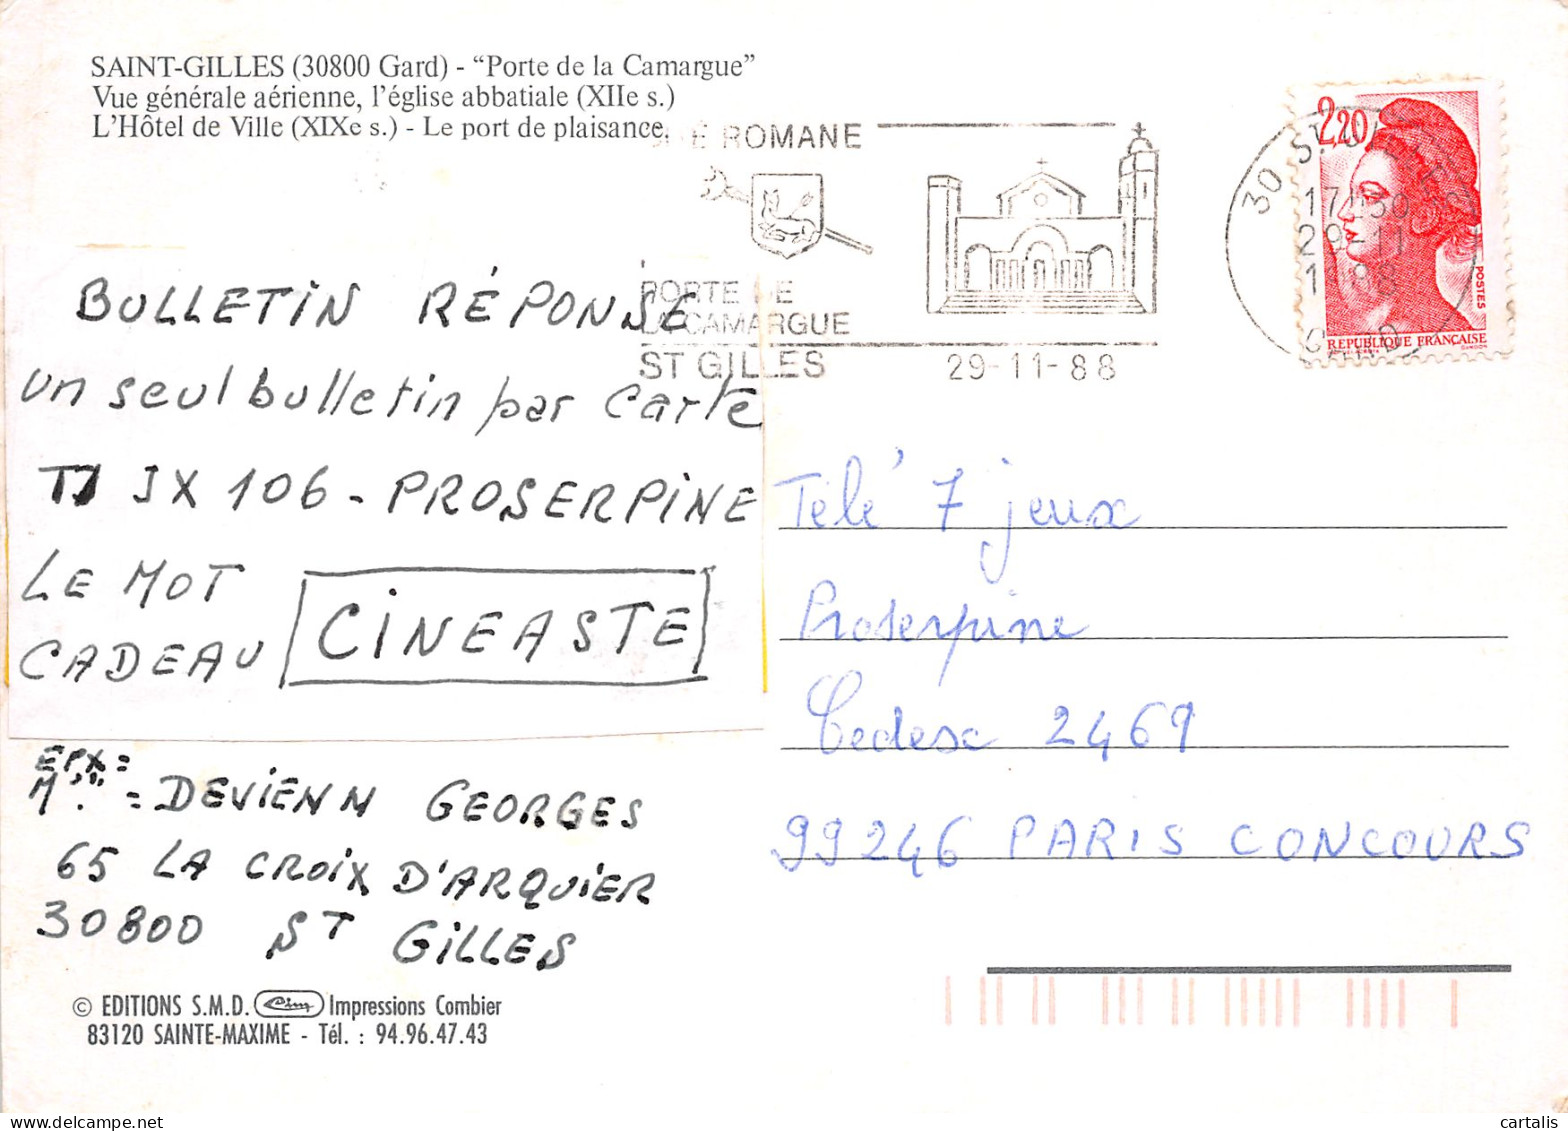 SAINT-GILLES (30800 Gard) - “Porte de la Camargue”
Vue générale aérienne, l'église abbatiale (XIIe s.)
L'Hôtel de Ville (XIXe s.) - Le port de plaisance.
ROMANE
PORTE DE
LA CAMARGUE
ST GILLES
29-11-88
2,20
POSTES
REPUBLIQUE FRANÇAISE
30 ST
29-11
BULLETIN RÉPONSE
un seul bulletin par carte
TJ JX 106 - PROSERPINE
LE MOT
CADEAU CINEASTE
EPX =
DEVIENN GEORGES
65 LA CROIX D'ARQUIER
30800 ST GILLES
Télé 7 jeux
Proserpine
Cedex 2469
99246 PARIS CONCOURS
© EDITIONS S.M.D. Cim Impressions Combier
83120 SAINTE-MAXIME - Tél. : 94.96.47.43
cartalis